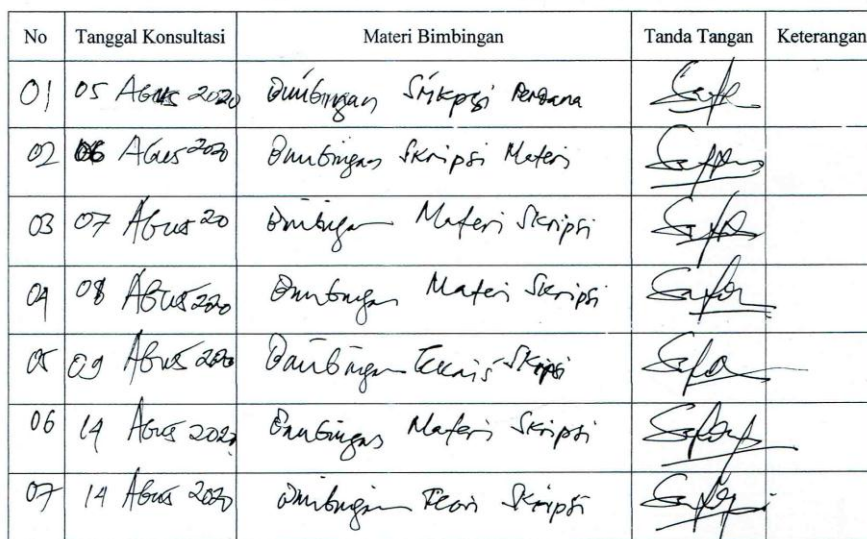 No Tanggal Konsultasi Materi Bimbingan Tanda Tangan Keterangan
01 05 Agus 2020 Bimbingan Skripsi Perdana
02 06 Agus 2020 Bimbingan Skripsi Materi
03 07 Agus 20 Bimbingan Materi Skripsi
04 08 Agus 2020 Bimbingan Materi Skripsi
05 09 Agus 2020 Bimbingan Teknis Skripsi
06 14 Agus 2020 Bimbingan Materi Skripsi
07 14 Agus 2020 Bimbingan Teori Skripsi